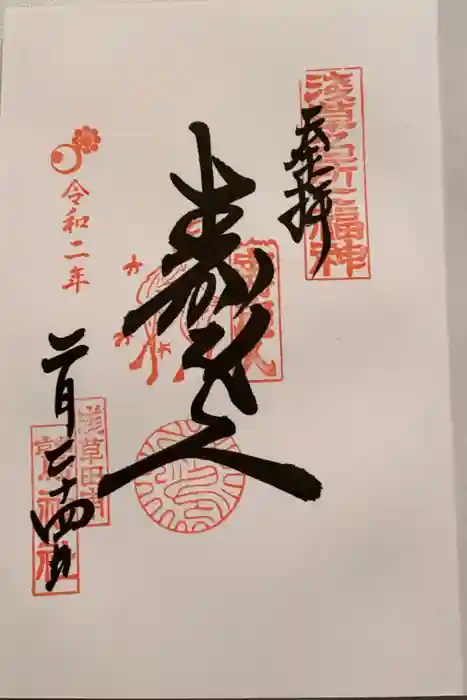 浅草名所七福神
奉拝
寿老人
令和二年
二月二十四日
浅草田甫
鷲神社